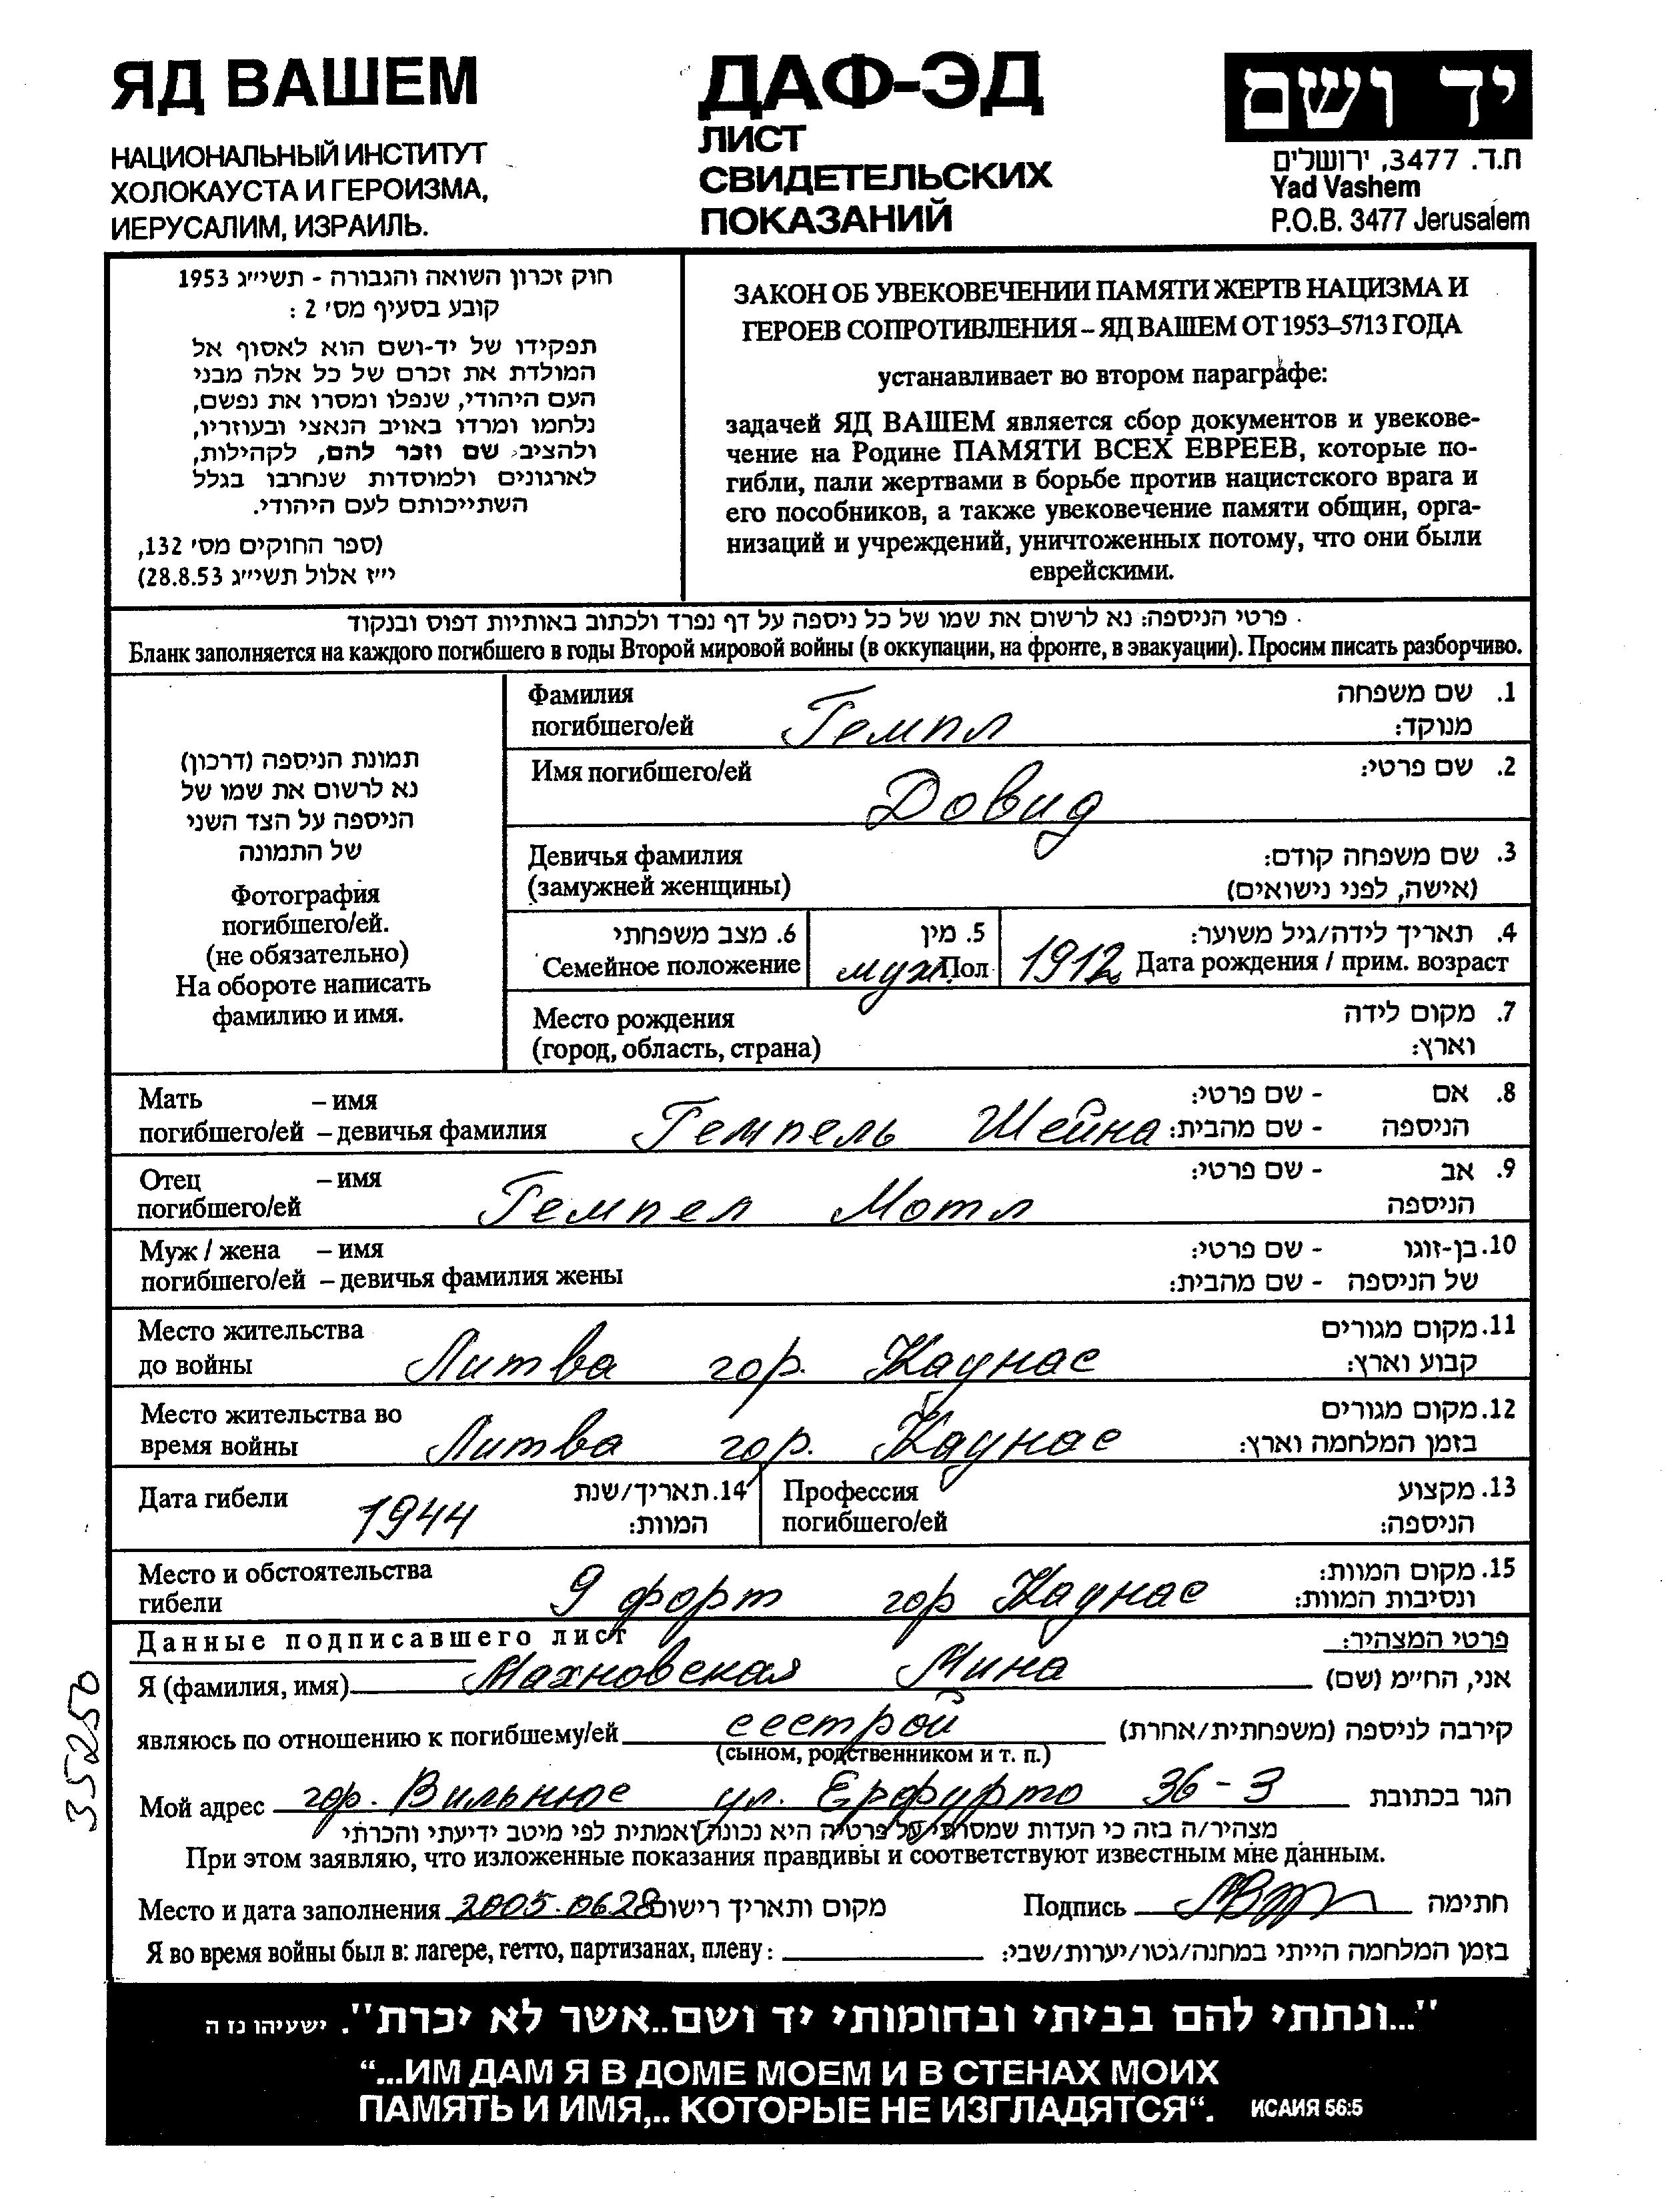 ЯД ВАШЕМ
НАЦИОНАЛЬНЫЙ ИНСТИТУТ
ХОЛОКАУСТА И ГЕРОИЗМА,
ИЕРУСАЛИМ, ИЗРАИЛЬ.
ДАФ-ЭД
ЛИСТ
СВИДЕТЕЛЬСКИХ
ПОКАЗАНИЙ
יד ושם
ת.ד. 3477, ירושלים
Yad Vashem
P.O.B. 3477 Jerusalem
חוק זכרון השואה והגבורה - תשי״ג 1953
קובע בסעיף מס׳ 2 :
תפקידו של יד-ושם הוא לאסוף אל
המולדת את זכרם של כל אלה מבני
העם היהודי, שנפלו ומסרו את נפשם,
נלחמו ומרדו באויב הנאצי ובעוזריו,
ולהציב שם וזכר להם, לקהילות,
לארגונים ולמוסדות שנחרבו בגלל
השתייכותם לעם היהודי.
(ספר החוקים מס׳ 132,
י״ז אלול תשי״ג 28.8.53)
ЗАКОН ОБ УВЕКОВЕЧЕНИИ ПАМЯТИ ЖЕРТВ НАЦИЗМА И
ГЕРОЕВ СОПРОТИВЛЕНИЯ – ЯД ВАШЕМ ОТ 1953–5713 ГОДА
устанавливает во втором параграфе:
задачей ЯД ВАШЕМ является сбор документов и увекове-
чение на Родине ПАМЯТИ ВСЕХ ЕВРЕЕВ, которые по-
гибли, пали жертвами в борьбе против нацистского врага и
его пособников, а также увековечение памяти общин, орга-
низаций и учреждений, уничтоженных потому, что они были
еврейскими.
פרטי הניספה: נא לרשום את שמו של כל ניספה על דף נפרד ולכתוב באותיות דפוס ובנקוד
Бланк заполняется на каждого погибшего в годы Второй мировой войны (в оккупации, на фронте, в эвакуации). Просим писать разборчиво.
תמונת הניספה (דרכון)
נא לרשום את שמו של
הניספה על הצד השני
של התמונה
Фотография
погибшего/ей.
(не обязательно)
На обороте написать
фамилию и имя.
Фамилия 1. שם משפחה
погибшего/ей Гемпл מנוקד:
Имя погибшего/ей Довид 2. שם פרטי:
Девичья фамилия 3. שם משפחה קודם:
(замужней женщины) (אישה, לפני נישואים)
6. מצב משפחתי 5. מין 4. תאריך לידה/גיל משוער:
Семейное положение муж. Пол 1912 Дата рождения / прим. возраст
Место рождения 7. מקום לידה
(город, область, страна) וארץ:
Мать – имя 8. אם - שם פרטי:
погибшего/ей – девичья фамилия Гемпель Шейна הניספה - שם מהבית:
Отец – имя 9. אב - שם פרטי:
погибшего/ей Гемпел Мотл הניספה
Муж / жена – имя 10. בן-זוגו - שם פרטי:
погибшего/ей – девичья фамилия жены של הניספה - שם מהבית:
Место жительства 11. מקום מגורים
до войны Литва гор. Каунас קבוע וארץ:
Место жительства во 12. מקום מגורים
время войны Литва гор. Каунас בזמן המלחמה וארץ:
Дата гибели 1944 14. תאריך/שנת
המוות:
Профессия 13. מקצוע
погибшего/ей הניספה:
Место и обстоятельства 15. מקום המוות:
гибели 9 форт гор Каунас ונסיבות המוות:
Данные подписавшего лист פרטי המצהיר:
Я (фамилия, имя) Махновская Мина אני, החי״מ (שם)
являюсь по отношению к погибшему/ей сестрой קירבה לניספה (משפחתית/אחרת)
(сыном, родственником и т. п.)
Мой адрес гор. Вильнюс ул. Ерфурто 36 - 3 הגר בכתובת
מצהיר/ה בזה כי העדות שמסרתי על פרטיה היא נכונה ואמתית לפי מיטב ידיעתי והכרתי
При этом заявляю, что изложенные показания правдивы и соответствуют известным мне данным.
Место и дата заполнения 2005.06.28 מקום ותאריך רישום Подпись חתימה
Я во время войны был в: лагере, гетто, партизанах, плену: בזמן המלחמה הייתי במחנה/גטו/יערות/שבי:
35250
"...ונתתי להם בביתי ובחומותי יד ושם..אשר לא יכרת". ישעיהו נז ה
“...ИМ ДАМ Я В ДОМЕ МОЕМ И В СТЕНАХ МОИХ
ПАМЯТЬ И ИМЯ,.. КОТОРЫЕ НЕ ИЗГЛАДЯТСЯ“. ИСАИЯ 56:5